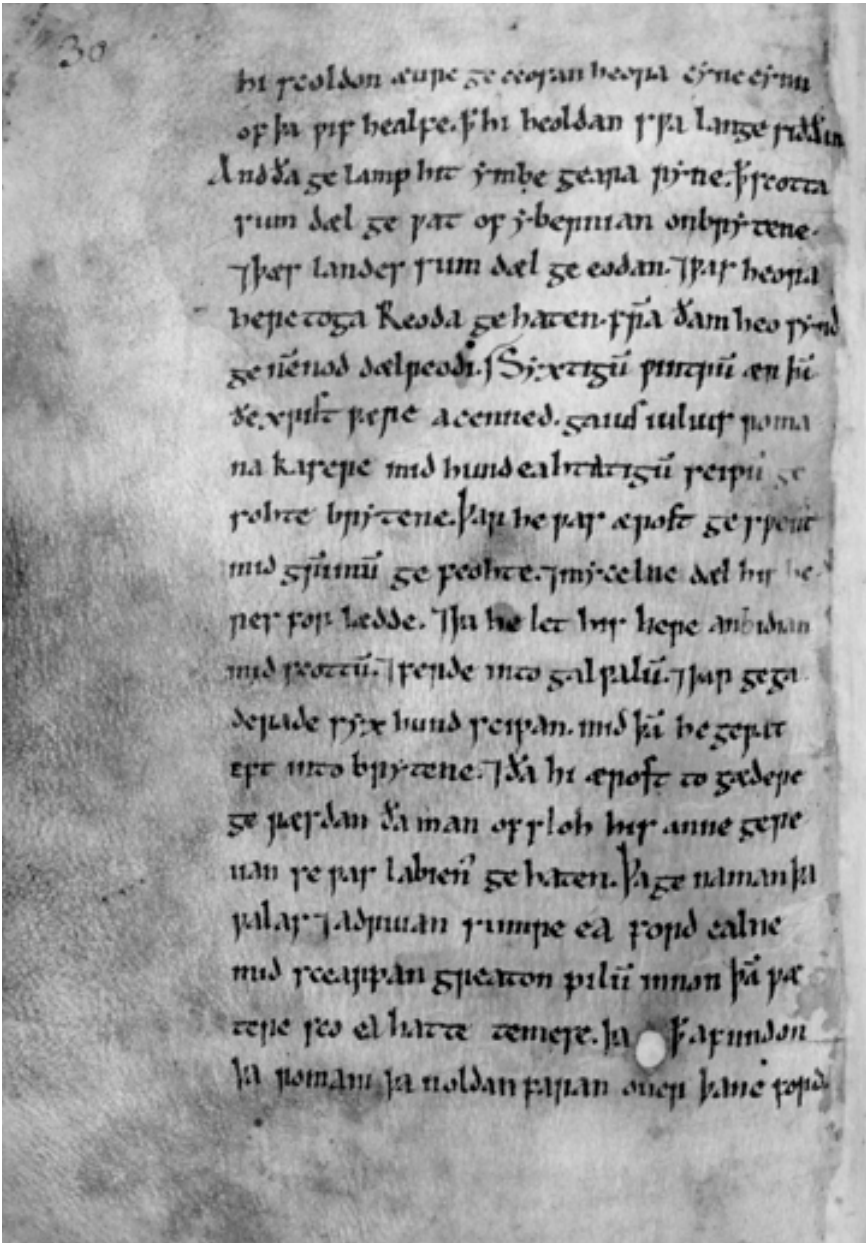 30
hi sceoldon æure ge ceoran heora cyne cynn
of þa wif healfe. ꝥ hi heoldan swa lange siððan
And ða ge lamp hit ymbe geara ryne. ꝥ scotta
sum dæl ge wat of ybernian on brytene.
⁊ þæs landes sum dæl ge eodan. ⁊ wæs heora
heretoga Reoda ge haten. frā ðam heo synd
ge nēnod dælreodi. Syxtigū wintrū ær þū
ðe xrist wære acenned. gaius iulius roma
na kasere mid hund eahtatigū scipū ge
sohte brytene. Þar he was ærost ge swenct
mid grimmū ge feohte. ⁊ mycelne dæl his he
res for lædde. ⁊ þa he let his here anbidian
mid scottū. ⁊ wende into galwalū. ⁊ þar gega
derade syx hund scipan. mid þā he gewat
eft into brytene. ⁊ ða hi ærost to gædere
ge ræsdan ða man of sloh his anne gere
uan se was labien' ge haten. Ða ge naman þa
walas ⁊ adriuan sumre ea ford ealne
mid scearpan greaton pilū innon þā wæ
tere seo ea hatte temese. þa ꝥ afundon
þa romani þa noldan faran ouer þane ford.